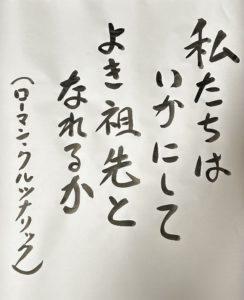 私たちは
いかにして
よき祖先と
なれるか
(ローマン・クルツナリック)